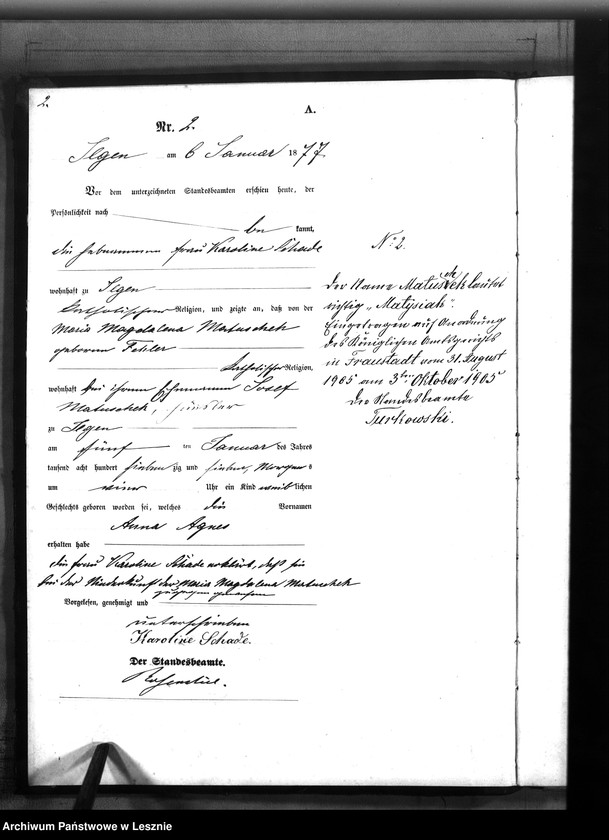 2.
A.
Nr. 2.
Ilgen am 6 Januar 1877.
Vor dem unterzeichneten Standesbeamten erschien heute, der
Persönlichkeit nach
be kannt,
die Hebeamme Frau Karoline Schade
wohnhaft zu Ilgen
katholischer Religion, und zeigte an, daß von der
Maria Magdalena Matuschek
geborene
katholischer Religion,
wohnhaft bei ihrem Ehemanne Josef
Matuschek, Häusler
zu Ilgen
am fünf ten Januar des Jahres
tausend acht hundert sieben zig und sieben, Morgen s
um Uhr ein Kind weib lichen
Geschlechts geboren worden sei, welches die Vornamen
Anna Agnes
erhalten habe
die Frau Karoline Schade erklärt, daß sie
bei der Niederkunft der Maria Magdalena Matuschek
zugegen gewesen
Vorgelesen, genehmigt und
unterschrieben
Karoline Schade.
Der Standesbeamte.
No 2.
Der Name lautet
richtig „Matysiak".
Eingetragen auf Anordnung
des Königlichen Amtsgerichts
in Fraustadt vom 31. August
1905 am 3ten Oktober 1905
Der Standesbeamte
Turkowski.
Archiwum Państwowe w Lesznie